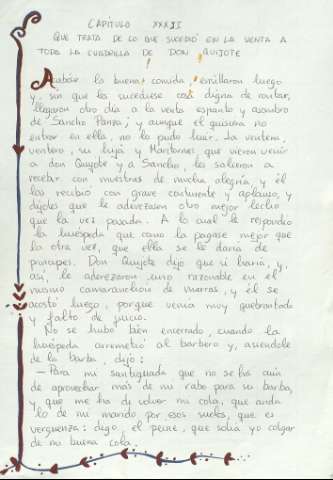 CAPÍTULO XXXII
QUE TRATA DE LO QUE SUCEDIÓ EN LA VENTA A
TODA LA CUADRILLA DE DON QUIJOTE
Acabóse la buena comida, ensillaron luego
y, sin que les sucediese cosa digna de contar,
llegaron otro día a la venta espanto y asombro
de Sancho Panza; y aunque él quisiera no
entrar en ella, no lo pudo huir. La ventera,
ventero, su hija y Maritornes que vieron venir
a don Quijote y a Sancho, les salieron a
recebir con muestras de mucha alegría, y él
las recibió con grave continente y aplauso, y
díjoles que le aderezasen otro mejor lecho
que la vez pasada. A lo cual le respondió
la huéspeda que como la pagase mejor que
la otra vez, que ella se le daría de
príncipes. Don Quijote dijo que sí haría, y,
así, le aderezaron uno razonable en el
mismo camaranchón de marras, y él se
acostó luego, porque venía muy quebrantado
y falto de juicio.
No se hubo bien encerrado, cuando la
huéspeda arremetió al barbero y, asiéndole
de la barba, dijo:
— Para mi santiguada que no se ha aún
de aprovechar más de mi rabo para su barba,
y que me ha de volver mi cola, que anda
lo de mi marido por esos suelos, que es
vergüenza: digo, el peine, que solía yo colgar
de mi buena cola.